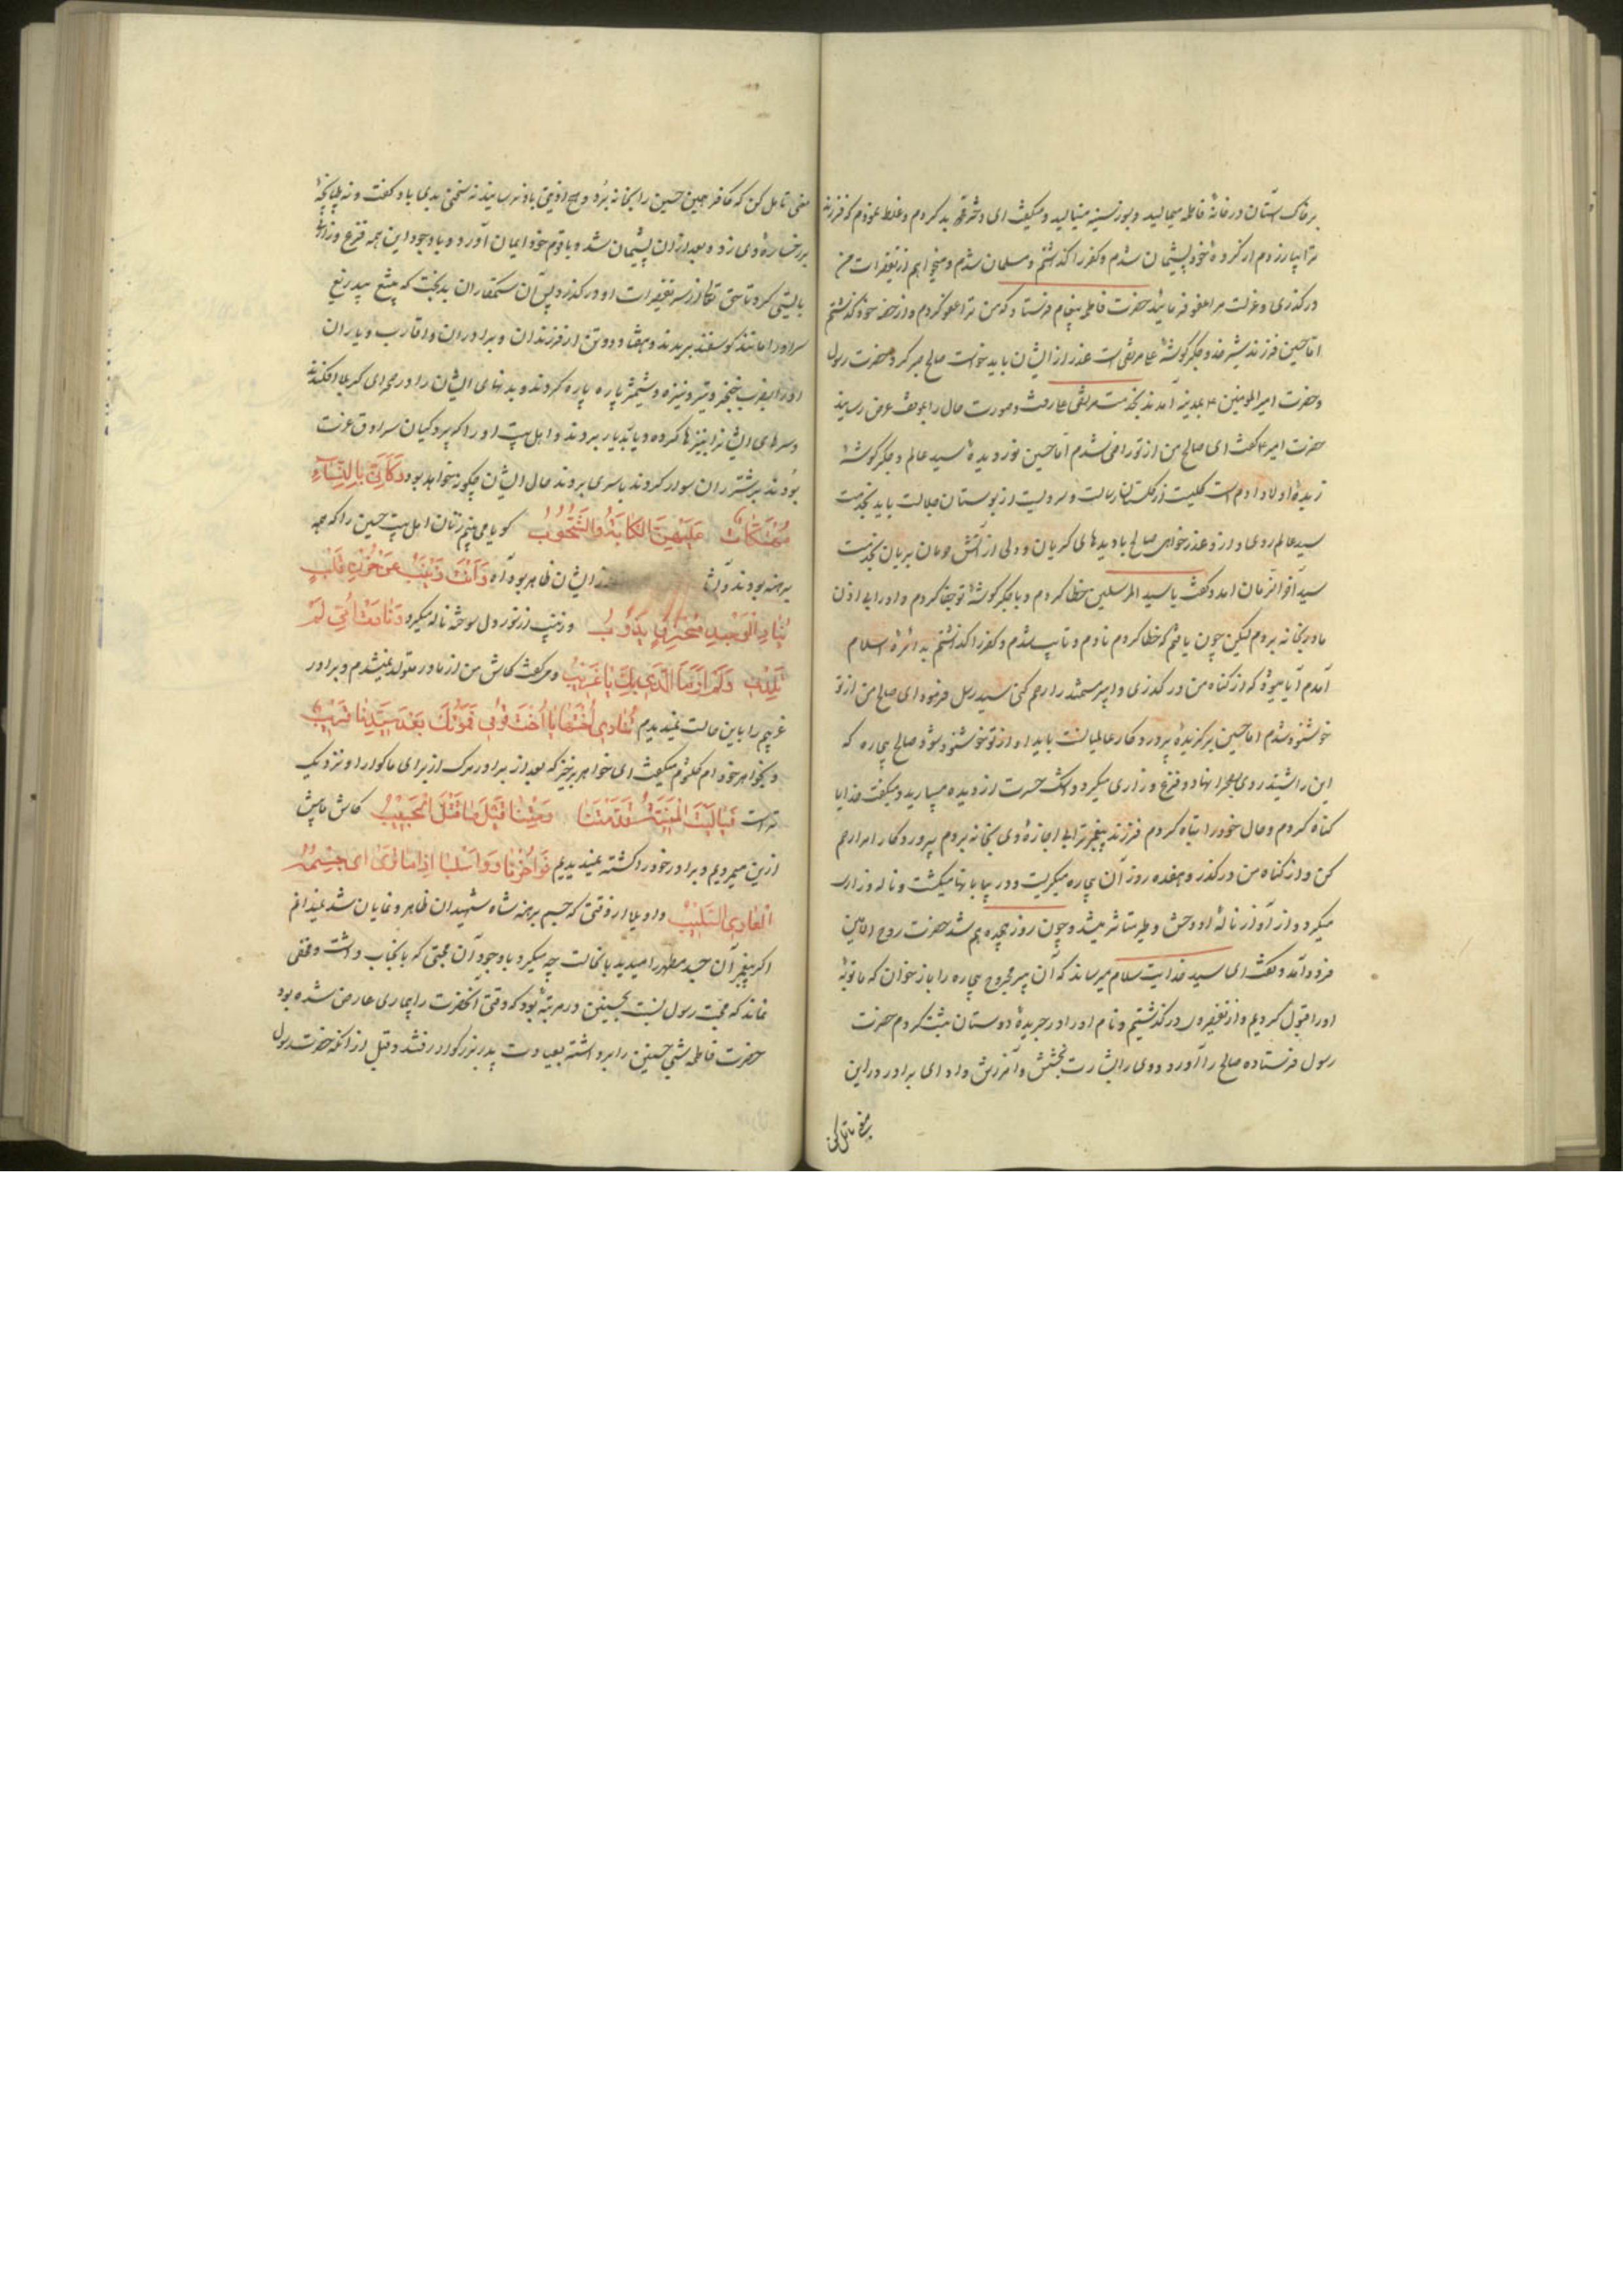 بر خاک آستان در خانهٔ فاطمه میمالید و بسوز سینه مینالید و میگفت ای دختر محمد بد کردم و غلط نمودم که فرزند
ترا بیازردم از کردهٔ خود پشیمان شدم و کفر را گذاشتم و مسلمان شدم و میخواهم از تقصیرات من
درگذری و مرا عفو فرمایید حضرت فاطمه پیغام فرستاد که من ترا عفو کردم و از حصهٔ خود گذشتم
اما حسین فرزند شیر خدا و جگرگوشهٔ علی مرتضی است عذر از ایشان باید خواست صالح صبر کرد حضرت رسول
و حضرت امیرالمومنین بمدینه آمدند بخدمت مرتضی علی رفت و صورت حال را بموقف عرض رسانید
حضرت امیر گفت ای صالح من از تو راضی شدم اما حسین نور دیدهٔ سید عالم و جگرگوشهٔ
زبدهٔ اولاد آدم است گلیست از گلستان رسالت و سرویست از بوستان جلالت باید بخدمت
سید عالم روی و از او عذر خواهی صالح با دیدهای گریان و دلی از آتش حرمان بریان بخدمت
سید آخر الزمان آمد و گفت یا سید المرسلین خطا کردم و با جگرگوشهٔ تو جفا کردم و او را بی اذن
مادر بخانه بردم لیکن چون یافتم که خطا کردم نادم و تایب شدم و کفر را گذاشتم بدائرهٔ اسلام
آمدم آیا میشود که از گناه من درگذری و این مستمند را رحم کنی سید رسل فرمود ای صالح من از تو
خوشنود شدم اما حسین برگزیدهٔ پروردگار عالمیانست باید او از تو خوشنود شود صالح بیچاره که
این را شنید روی بصحرا نهاد و فزع و زاری میکرد و اشک حسرت از دیده میبارید و میگفت خدایا
گناه کردم و حال خود را تباه کردم فرزند پیغمبر ترا بی اجازهٔ وی بخانه بردم پروردگارا مرا رحم
کن و از گناه من درگذر و هفده روز آن بیچاره میگریست و در بیابانها میگشت و ناله و زاری
میکرد و از آواز نالهٔ او وحش و طیر متاثر میشد و چون روز هجدهم شد حضرت روح الامین
فرود آمد و گفت ای سید خدایت سلام میرساند که آن پیر مجروح بیچاره را باز خوان که ما توبهٔ
او را قبول کردیم و از تقصیر وی درگذشتیم و نام او را در جریدهٔ دوستان ثبت کردم حضرت
رسول فرستاده صالح را آورد و وی را بشارت بخشش و آمرزش داد ای برادر در این
معنی تامل کن
معنی تامل کن که کافر چون حسین را بخانه برد و هیچ اذیتی باو نرسانید نه سخن بدی باو گفت و نه طپانچهٔ
بر رخسارهٔ وی زد و بعد از آن پشیمان شد و با قوم خود ایمان آورد و با وجود این همه فزع و زاری
بایستی کرد تا حق تعالی از سر تقصیرات او درگذرد پس آن ستمکاران بدبخت که بتیغ بیدریغ
سر او را مانند گوسفند بریدند و هفتاد و دو تن از فرزندان و برادران و اقارب و یاران
او را بضرب خنجر و تیر و نیزه و شمشیر پاره پاره کردند و بدنهای ایشان را در صحرای کربلا افکندند
و سرهای ایشان را بنیزها کرده و دیار بدیار بردند و اهل بیت او را که پردگیان سرادق عزت
بودند بر شتران سوار کردند باسری بردند حال ایشان چگونه خواهد بود وَكَأَنِّی بِالنِّسَاءِ
مُهَتَّكَاتٌ عَلَیْهِنَّ الْكَآبَةُ وَالشُّحُوبُ گویا می بینم زنان اهل بیت حسین را که همه
برهنه بودند و آثار ایشان ظاهر بود آه
و زینب از تنور دل سوخته ناله میکرد
و میگفت کاش من از مادر متولد نمیشدم و برادر
غریبم را باین حالت نمیدیدم تُنَادِی أُخْتَهَا یَا أُخْتُ قُومِی فَمَوْتُكِ بَعْدَ سَیِّدِنَا قَرِیبٌ
و بخواهر خود ام کلثوم میگفت ای خواهر برخیز که بعد از برادر مرگ از برای ما گوارا و نزدیک
تر است فَیَا لَیْتَ الْمَنِیَّةَ قَدَّمَتْنَا وَمِتْنَا قَبْلَ مَا قُتِلَ الْحَبِیبُ کاش ما پیش
ازین میمردیم و برادر خود را کشته نمیدیدیم
واویلا از وقتی که جسم برهنه شاه شهیدان ظاهر و نمایان شد نمیدانم
اگر پیغمبر آن جسد مطهر را میدید باین حالت چه میکرد با وجود آن محبتی که بآنجناب داشت و مخفی
نماند که محبت رسول نسبت بحسنین در مرتبهٔ بود که وقتی آنحضرت را بیماری عارض شده بود
حضرت فاطمه شبی حسنین را برداشته بعیادت پدر بزرگوار رفتند و قبل از آنکه حضرت رسول